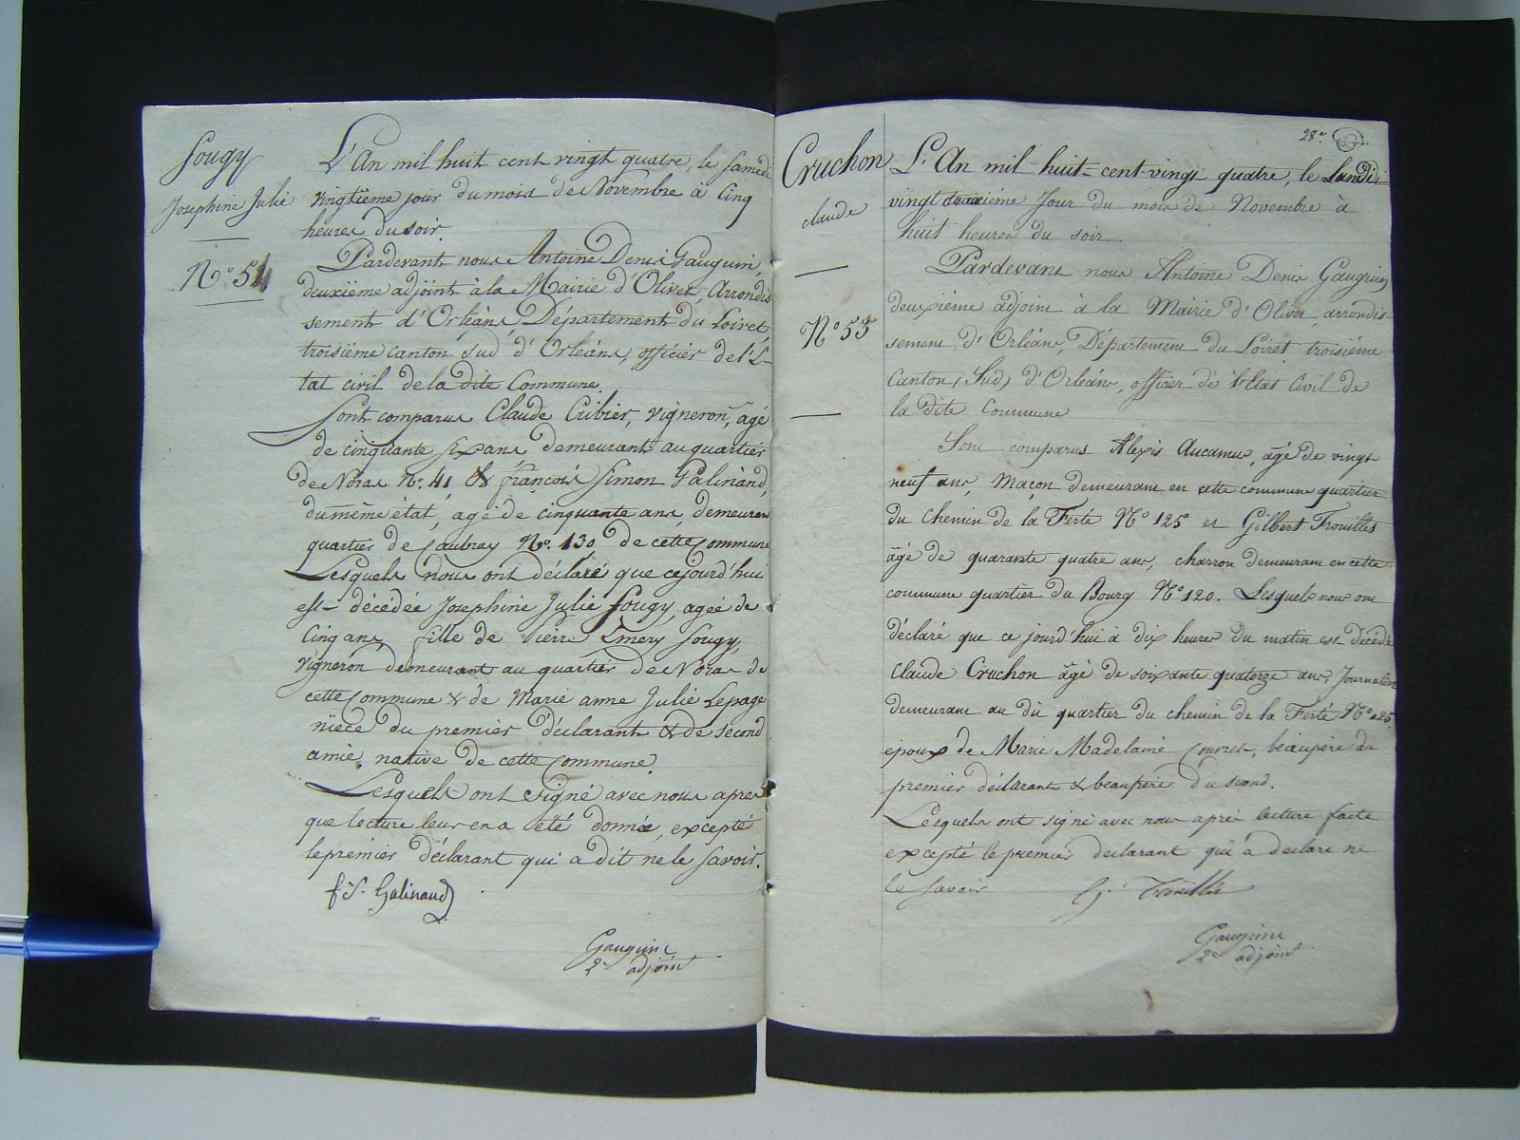 Sougy
Josephine Julie
N.° 54
L'An mil huit cent vingt quatre, le Samedi
vingtième jour du mois de Novembre à Cinq
heures du soir.
Pardevant nous Antoine Denis Gauguin,
deuxième adjoint à la Mairie d'Olivet, Arrondis
sement d'Orléans, Département du Loiret,
troisième canton sud d'Orléans, officier de l'E-
tat civil de la dite Commune.
Sont comparus Claude Cribier, vigneron, âgé
de cinquante six ans demeurant au quartier
de Noras N.° 41 & françois Simon Galinand,
du même état, agé de cinquante ans, demeurant
quartier de Caubray N.° 130 de cette Commune
Lesquels nous ont déclaré que cejourd'hui
est décédée Josephine Julie Sougy, agée de
Cinq ans, fille de Pierre Emery Sougy,
vigneron demeurant au quartier de Noras de
cette Commune & de Marie anne Julie Lepage
nièce du premier déclarant & de second
amie, native de cette Commune.
Lesquels ont Signé avec nous apres
que lecture leur en a été donnée, excepté
le premier déclarant qui a dit ne le savoir.
f.S. Galinaud
Gauguin
2e adjoint
28.e
Cruchon
claude
N° 55
L'An mil huit-cent-vingt quatre, le Lundi
vingt deuxième Jour du mois de Novembre à
huit heures du soir
Pardevant nous Antoine Denis Gauguin
deuxième adjoint à la Mairie d'Olivet, arrondis
sement d'Orléans, Département du Loiret, troisième
Canton (Sud) d'Orléans, officier de l'etat Civil de
la dite commune
Sont comparus Alexis Aucamus, âgé de vingt
neuf ans, Maçon demeurant en cette commune quartier
du chemin de la Ferté N° 125 et Gilbert Trouillet
âgé de quarante quatre ans, charron demeurant en cette
commune quartier du Bourg N° 120. Lesquels nous ont
déclaré que ce jourd'hui à dix heures du matin est décédé
Claude Cruchon âgé de soixante quatorze ans, Journalier
demeurant au dit quartier du chemin de la Ferté N° 125
epoux de Marie Madelaine beaupere du
premier déclarant & beaupere du second.
Lesquels ont signé avec nous après lecture faite
excepté le premier déclarant qui a déclaré ne
le savoir
G. Trouillet
Gauguin
2e adjoint